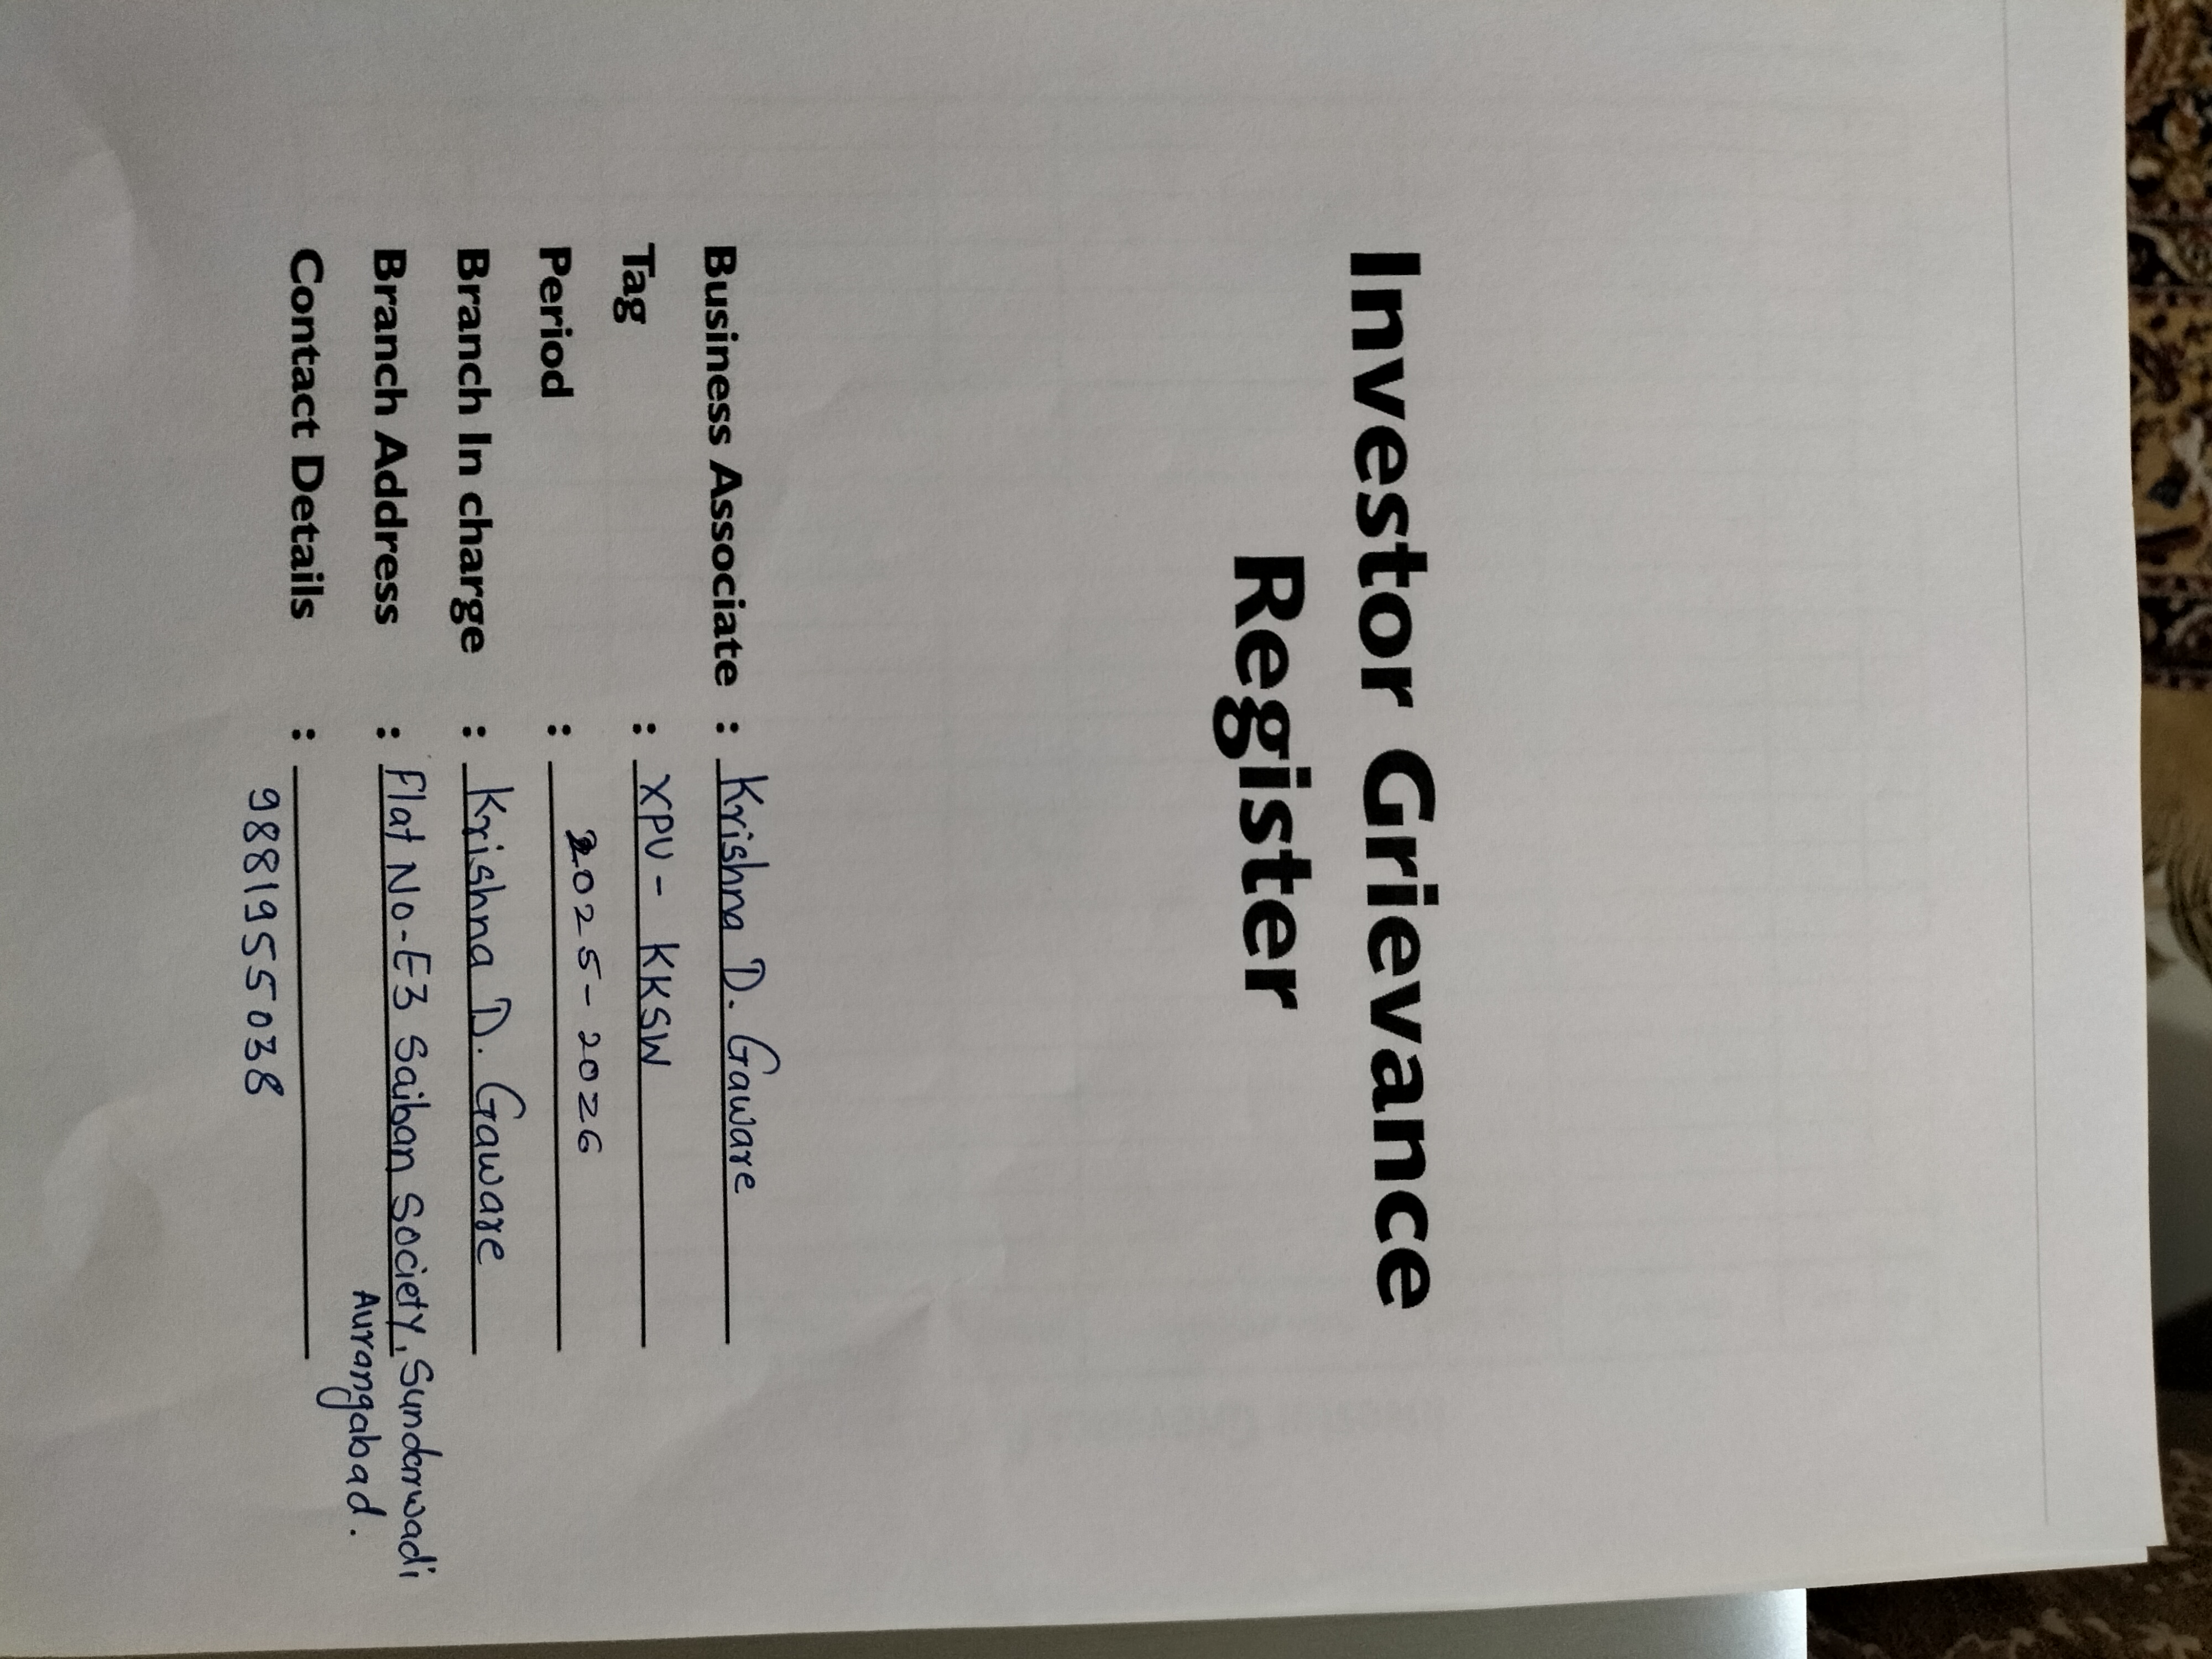 Investor Grievance
Register
Business Associate : Krishna D. Gaware
Tag : XPU - KKSW
Period : 2025-2026
Branch In charge : Krishna D. Gaware
Branch Address : Flat No-E3 Saiban Society, Sundarwadi
Aurangabad.
Contact Details :
9881955038